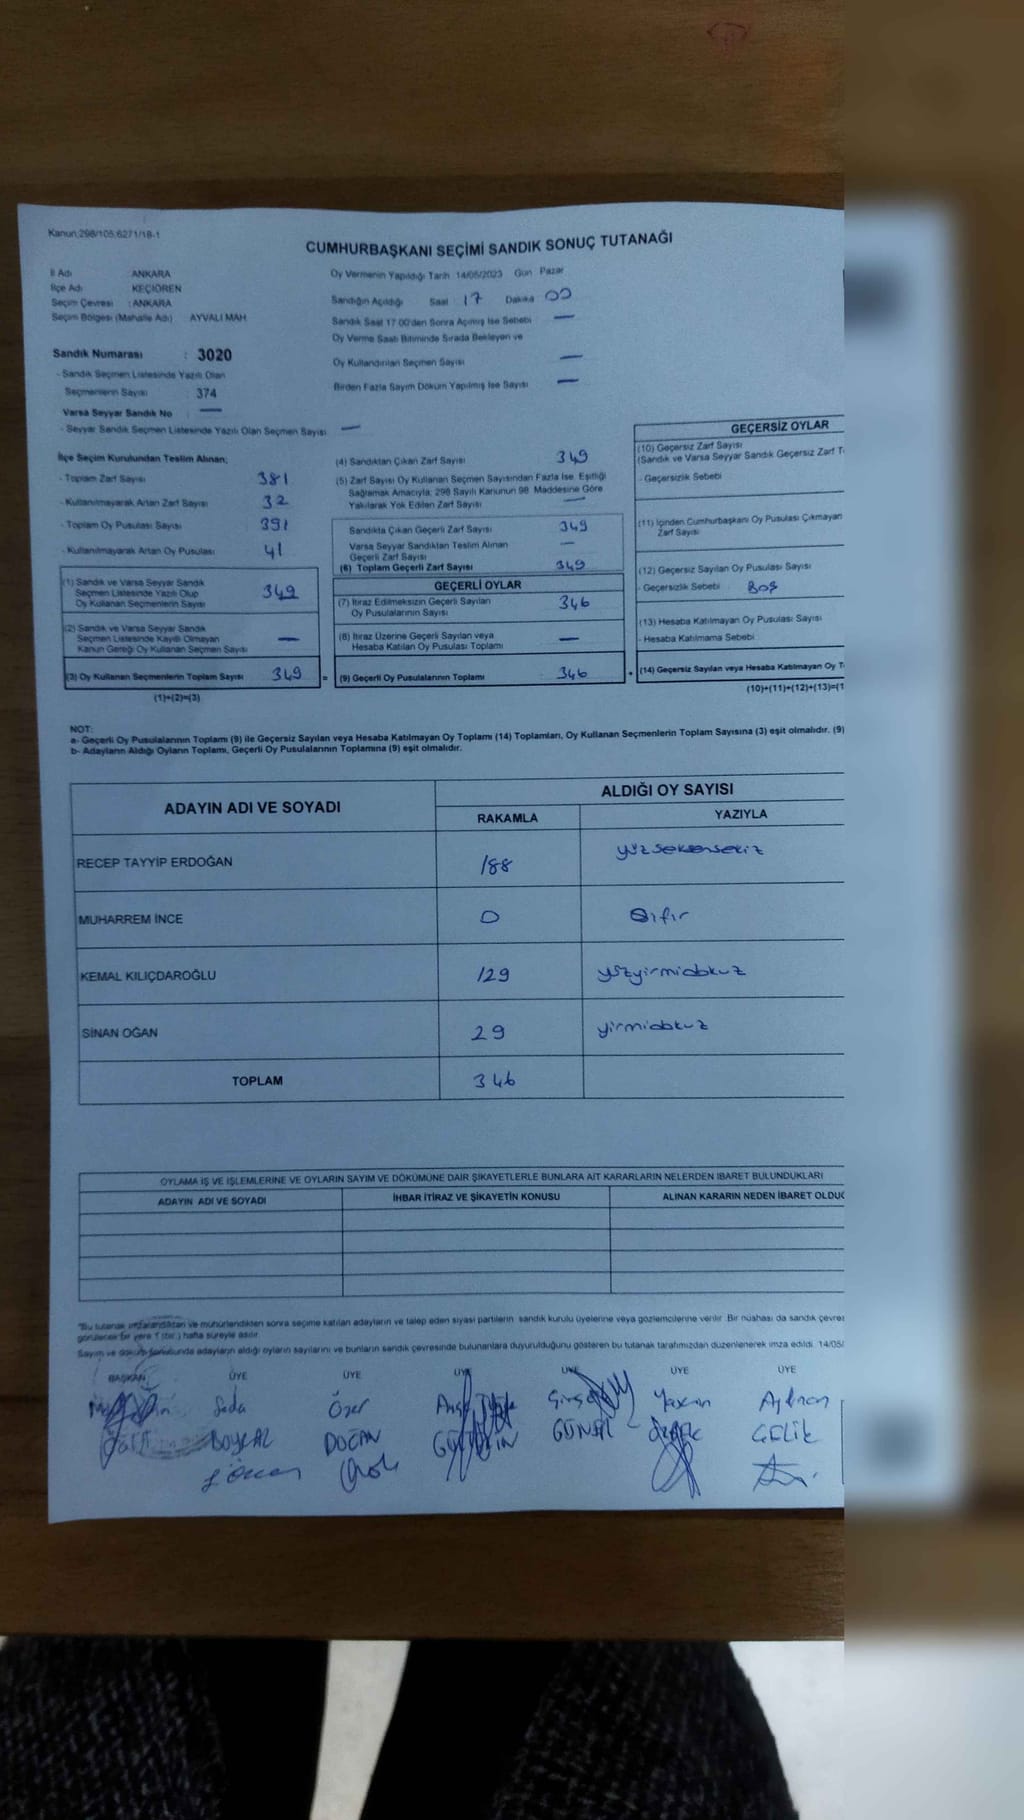 Kanun:298/105;6271/18-1
CUMHURBAŞKANI SEÇİMİ SANDIK SONUÇ TUTANAĞI
İl Adı ANKARA
İlçe Adı KEÇİÖREN
Seçim Çevresi : ANKARA
Seçim Bölgesi (Mahalle Adı) AYVALI MAH.
Oy Vermenin Yapıldığı Tarih 14/05/2023 Gün Pazar
Sandığın Açıldığı Saat 17 Dakika 00
Sandık Saat 17.00'den Sonra Açılmış İse Sebebi —
Oy Verme Saati Bitiminde Sırada Bekleyen ve
Oy Kullandırılan Seçmen Sayısı —
Birden Fazla Sayım Döküm Yapılmış İse Sayısı —
Sandık Numarası : 3020
- Sandık Seçmen Listesinde Yazılı Olan
Seçmenlerin Sayısı : 374
Varsa Seyyar Sandık No : —
- Seyyar Sandık Seçmen Listesinde Yazılı Olan Seçmen Sayısı —
İlçe Seçim Kurulundan Teslim Alınan;
- Toplam Zarf Sayısı 381
- Kullanılmayarak Artan Zarf Sayısı 32
- Toplam Oy Pusulası Sayısı 391
- Kullanılmayarak Artan Oy Pusulası 41
(1) Sandık ve Varsa Seyyar Sandık
Seçmen Listesinde Yazılı Olup
Oy Kullanan Seçmenlerin Sayısı 349
(2) Sandık ve Varsa Seyyar Sandık
Seçmen Listesinde Kayıtlı Olmayan
Kanun Gereği Oy Kullanan Seçmen Sayısı —
(3) Oy Kullanan Seçmenlerin Toplam Sayısı 349 =
(1)+(2)=(3)
(4) Sandıktan Çıkan Zarf Sayısı 349
(5) Zarf Sayısı Oy Kullanan Seçmen Sayısından Fazla İse, Eşitliği
Sağlamak Amacıyla; 298 Sayılı Kanunun 98. Maddesine Göre
Yakılarak Yok Edilen Zarf Sayısı —
Sandıkta Çıkan Geçerli Zarf Sayısı 349
Varsa Seyyar Sandıktan Teslim Alınan
Geçerli Zarf Sayısı —
(6) Toplam Geçerli Zarf Sayısı 349
GEÇERLİ OYLAR
(7) İtiraz Edilmeksizin Geçerli Sayılan
Oy Pusulalarının Sayısı 346
(8) İtiraz Üzerine Geçerli Sayılan veya
Hesaba Katılan Oy Pusulası Toplamı —
(9) Geçerli Oy Pusulalarının Toplamı 346 +
GEÇERSİZ OYLAR
(10) Geçersiz Zarf Sayısı
(Sandık ve Varsa Seyyar Sandık Geçersiz Zarf T
- Geçersizlik Sebebi
(11) İçinden Cumhurbaşkanı Oy Pusulası Çıkmayan
Zarf Sayısı
(12) Geçersiz Sayılan Oy Pusulası Sayısı
- Geçersizlik Sebebi Boş
(13) Hesaba Katılmayan Oy Pusulası Sayısı
- Hesaba Katılmama Sebebi
(14) Geçersiz Sayılan veya Hesaba Katılmayan Oy T
(10)+(11)+(12)+(13)=(1
NOT:
a- Geçerli Oy Pusulalarının Toplamı (9) ile Geçersiz Sayılan veya Hesaba Katılmayan Oy Toplamı (14) Toplamları, Oy Kullanan Seçmenlerin Toplam Sayısına (3) eşit olmalıdır. (9)
b- Adayların Aldığı Oyların Toplamı, Geçerli Oy Pusulalarının Toplamına (9) eşit olmalıdır.
ADAYIN ADI VE SOYADI ALDIĞI OY SAYISI
RAKAMLA YAZIYLA
RECEP TAYYİP ERDOĞAN 188 yüzseksensekiz
MUHARREM İNCE 0 Sıfır
KEMAL KILIÇDAROĞLU 129 yüzyirmidokuz
SİNAN OĞAN 29 yirmidokuz
TOPLAM 346
OYLAMA İŞ VE İŞLEMLERİNE VE OYLARIN SAYIM VE DÖKÜMÜNE DAİR ŞİKAYETLERLE BUNLARA AİT KARARLARIN NELERDEN İBARET BULUNDUKLARI
ADAYIN ADI VE SOYADI İHBAR İTİRAZ VE ŞİKAYETİN KONUSU ALINAN KARARIN NEDEN İBARET OLDUĞ
*Bu tutanak imzalandıktan ve mühürlendikten sonra seçime katılan adayların ve talep eden siyasi partilerin sandık kurulu üyelerine veya gözlemcilerine verilir. Bir nüshası da sandık çevres
görülecek bir yere 1 (bir ) hafta süreyle asılır.
Sayım ve döküm sonucunda adayların aldığı oyların sayılarını ve bunların sandık çevresinde bulunanlara duyurulduğunu gösteren bu tutanak tarafımızdan düzenlenerek imza edildi. 14/05/
BAŞKAN ÜYE ÜYE ÜYE ÜYE ÜYE ÜYE
Seda Özer Yaxın Ayhan
BOYSAL DOĞAN GÜNSEL ÇELİK